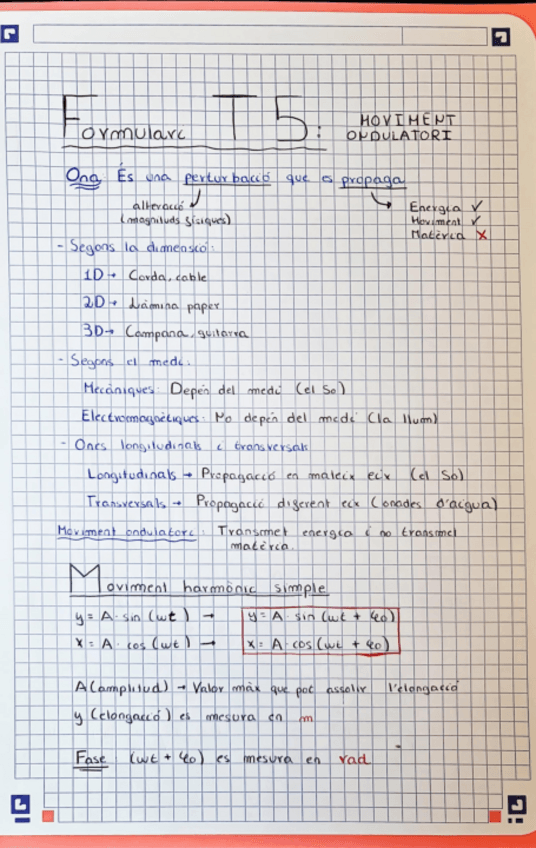 Formulari T5: MOVIMENT
ONDULATORI
Ona És una perturbació que es propaga
alteració
(magnituds físiques)
Energia ✓
Moviment ✓
Matèria ✗
- Segons la dimensió:
1D → Corda, cable
2D → Làmina paper
3D → Campana, guitarra
- Segons el medi:
Mecàniques: Depèn del medi (el So)
Electromagnètiques: No depèn del medi (la llum)
- Ones longitudinals i transversals
Longitudinals → Propagació en mateix eix (el So)
Transversals → Propagació diferent eix (onades d'aigua)
Moviment ondulatori: Transmet energia i no transmet
matèria.
Moviment harmònic simple
y = A · sin (ωt) → y = A · sin (ωt + φ0)
x = A · cos (ωt) → x = A · cos (ωt + φ0)
A (amplitud) → Valor màx que pot assolir l'elongació
y (elongació) es mesura en m
Fase (ωt + φ0) es mesura en rad